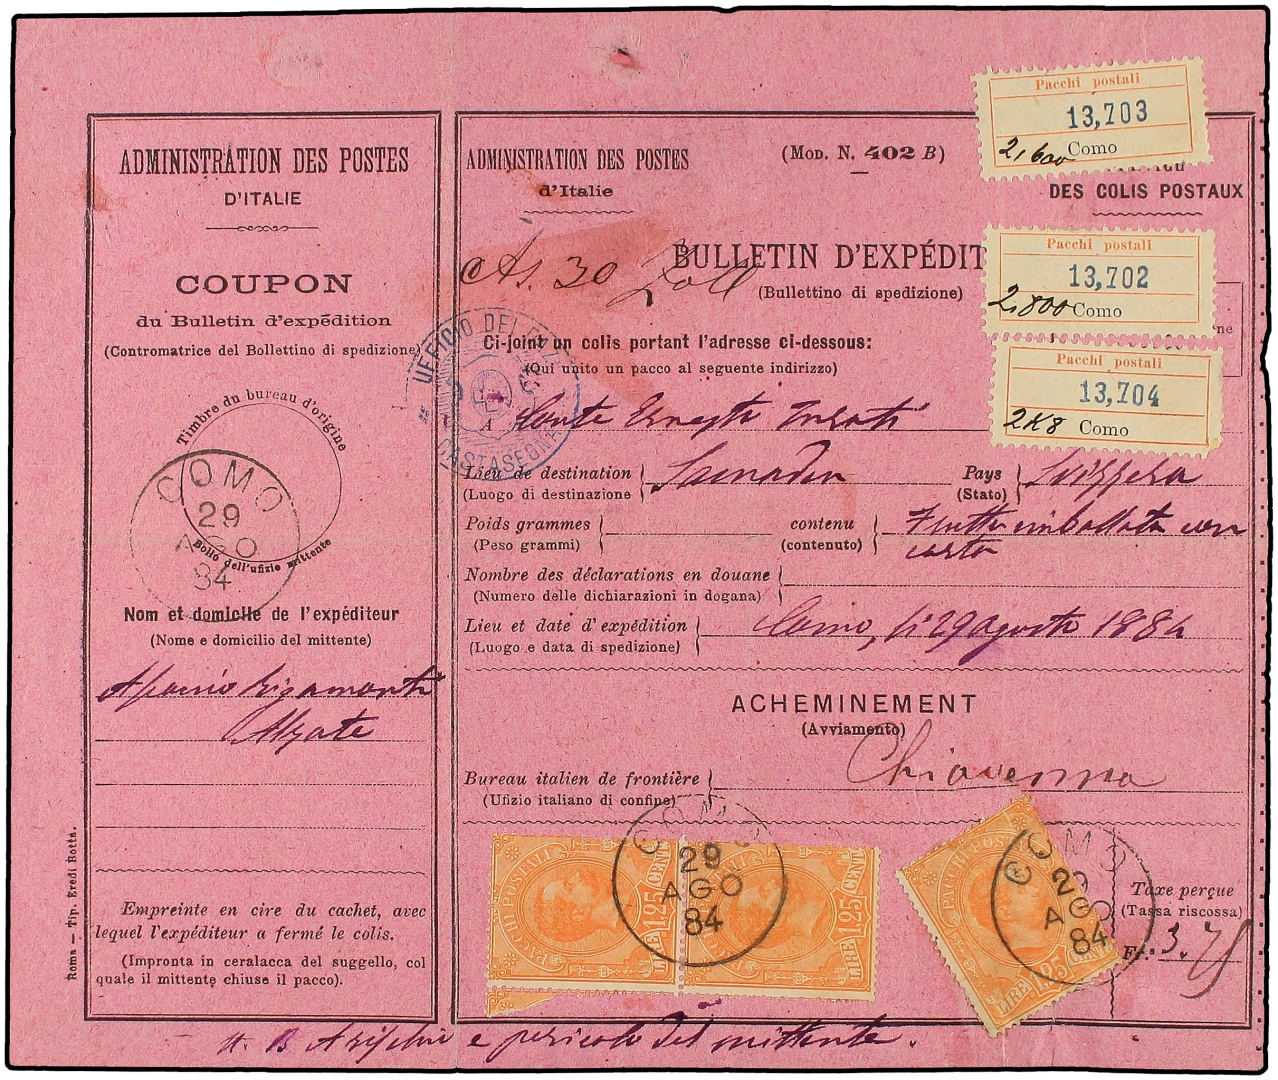 ADMINISTRATION DES POSTES
D'ITALIE
COUPON
du Bulletin d'expédition
(Contromatrice del Bollettino di spedizione)
Timbre du bureau d'origine
COMO
29
AGO
84
Bollo dell'ufizio mittente
Nom et domicile de l'expéditeur
(Nome e domicilio del mittente)
Alzate
Empreinte en cire du cachet, avec
lequel l'expéditeur a fermé le colis.
(Impronta in ceralacca del suggello, col
quale il mittente chiuse il pacco).
Roma — Tip. Eredi Botta.
ADMINISTRATION DES POSTES
d'Italie
(MOD. N. 402 B)
DES COLIS POSTAUX
Pacchi postali
13,703
2,600
Como
Pacchi postali
13,702
2,800
Como
Pacchi postali
13,704
2K8
Como
30
BULLETIN D'EXPÉDIT
(Bullettino di spedizione)
UFFICIO DEI DAZI
CASTASEGNA
Ci-joint un colis portant l'adresse ci-dessous:
(Qui unito un pacco al seguente indirizzo)
A Conte Ernesto
Lieu de destination
(Luogo di destinazione
Samaden
Pays
(Stato)
Svizzera
Poids grammes
(Peso grammi)
contenu
(contenuto)
Frutta imballata con
carta
Nombre des déclarations en douane
(Numero delle dichiarazioni in dogana)
Lieu et date d'expédition
(Luogo e data di spedizione)
Como, li 29 agosto 1884
ACHEMINEMENT
(Avviamento)
Bureau italien de frontière
(Ufizio italiano di confine)
Chiavenna
PACCHI POSTALI
LIRE 1,25 CENT
PACCHI POSTALI
LIRE 1,25 CENT
COMO
29
AGO
84
PACCHI POSTALI
LIRE 1,25 CENT
COMO
29
AGO
84
Taxe perçue
(Tassa riscossa)
Fr. 3.75
e pericolo del mittente.